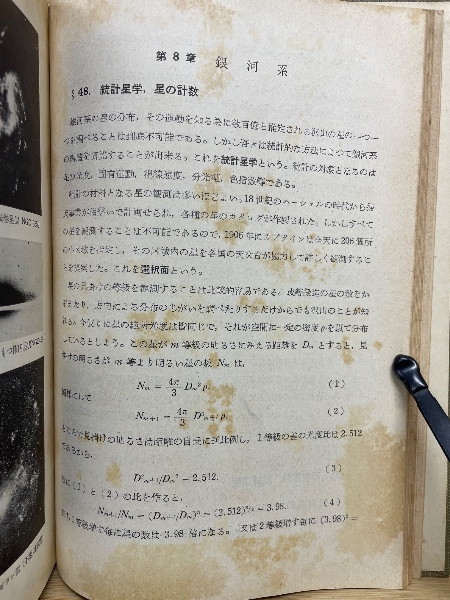 第8章 銀河系
§48. 統計星学，星の計数
銀河系の星の分布，その運動を知る為に数百億と推定される沢山の星の一つ一
つを調べることは到底不可能である。しかし吾々は統計的な方法によって銀河系
の構造を研究することが出来る。これを統計星学という。統計の対象となるのは
星の光度，固有運動，視線速度，分光型，色指数等である。
統計の材料となる星の観測は多いほどよい。18世紀のハーシェルの時代から
星を観測することは不可能であるので，1906年にカプタインは全天に206個所
の小区域を指定し，その区域内の星を各国の天文台が協力して詳しく観測するこ
とを提案した。これを選択面という。
星の見掛けの等級を観測することは比較的容易である。
ぞえたり，方向による分布のちがいを調べたりするだけからでも沢山のことが知
られる。今仮りに星の絶対光度は皆同じで，それが空間に一定の密度ρを以て分布
しているとしよう。この星がm等級の明るさにみえる距離をDₘとすると，見
掛けの明るさがm等より明るい星の数Nₘは，
Nₘ = 4π/3 Dₘ³ρ, (1)
同様にして
Nₘ₊₁ = 4π/3 D³ₘ₊₁ρ. (2)
ところで見掛けの明るさは距離の自乗に逆比例し，1等級の差の光度比は2.512
であるから，
D²ₘ₊₁/Dₘ² = 2.512. (3)
故に(1)と(2)の比を作ると，
Nₘ₊₁/Nₘ = (Dₘ₊₁/Dₘ)³ = (2.512)^{3/2} = 3.98. (4)
即ち1等級増す毎に星の数は3.98倍になる。(又は2等級増す毎に(3.98)² =